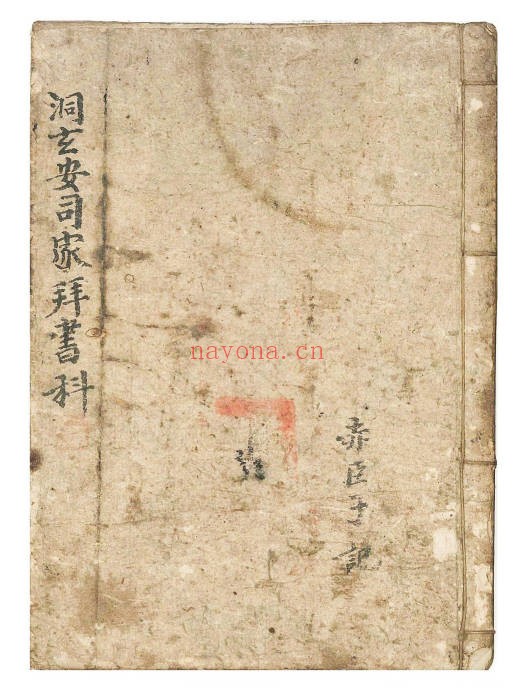 洞玄安司家拜書科
nayona.cn
赤臣手記